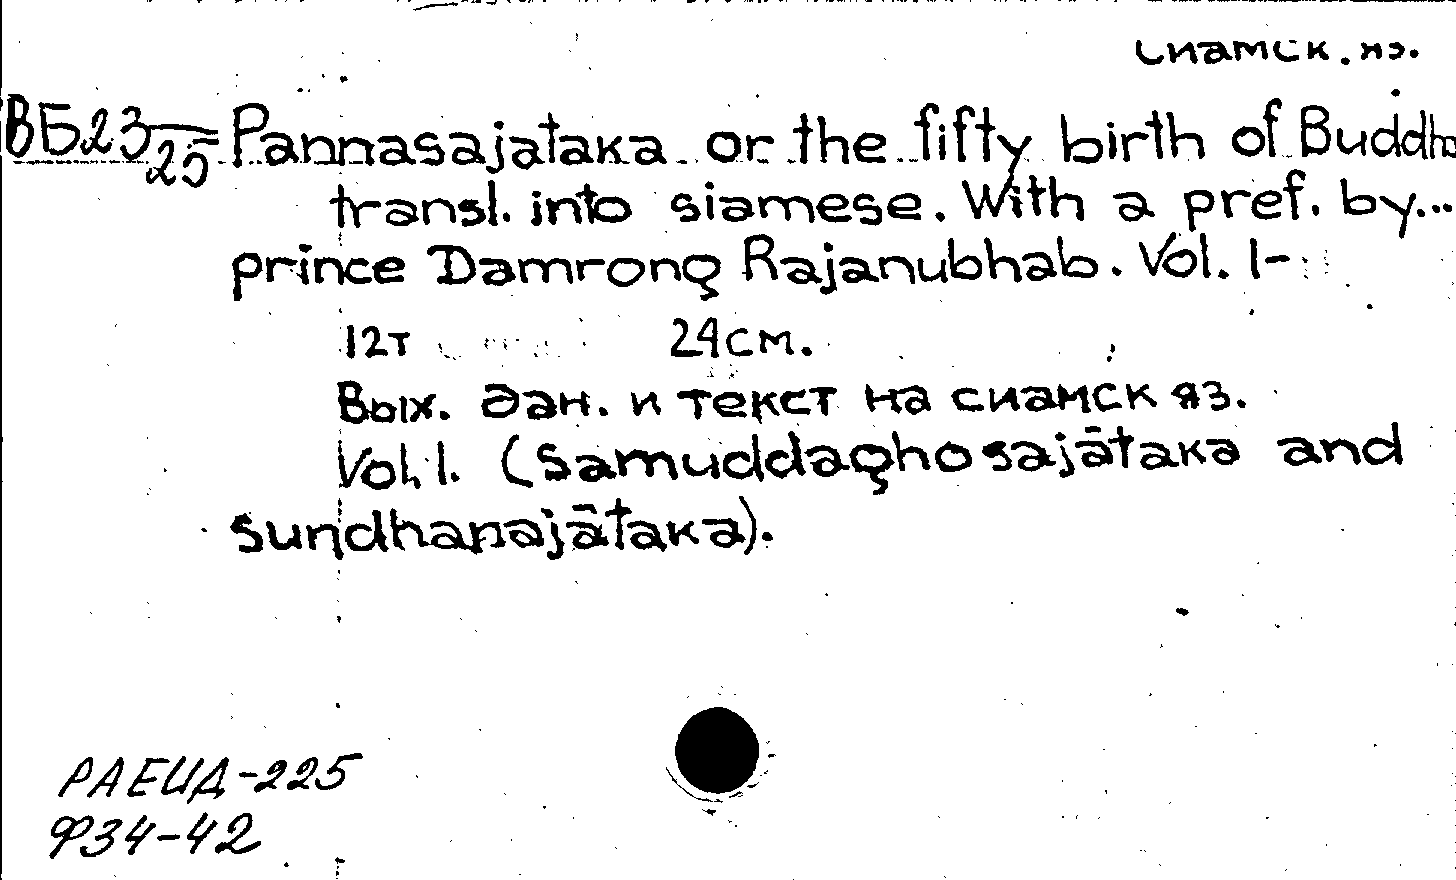 сиамск. яз.
ВБ23/25 Pannasajataka or the fifty birth of Buddha
transl. into siamese. With a pref. by...
prince Damrong Rajanubhab. Vol. 1-
12т 24см.
Вых. дан. и текст на сиамск яз.
Vol. 1. (Samuddaghosajātaka and
sundhanajātaka).
РАЕИД-225
Ф34-42